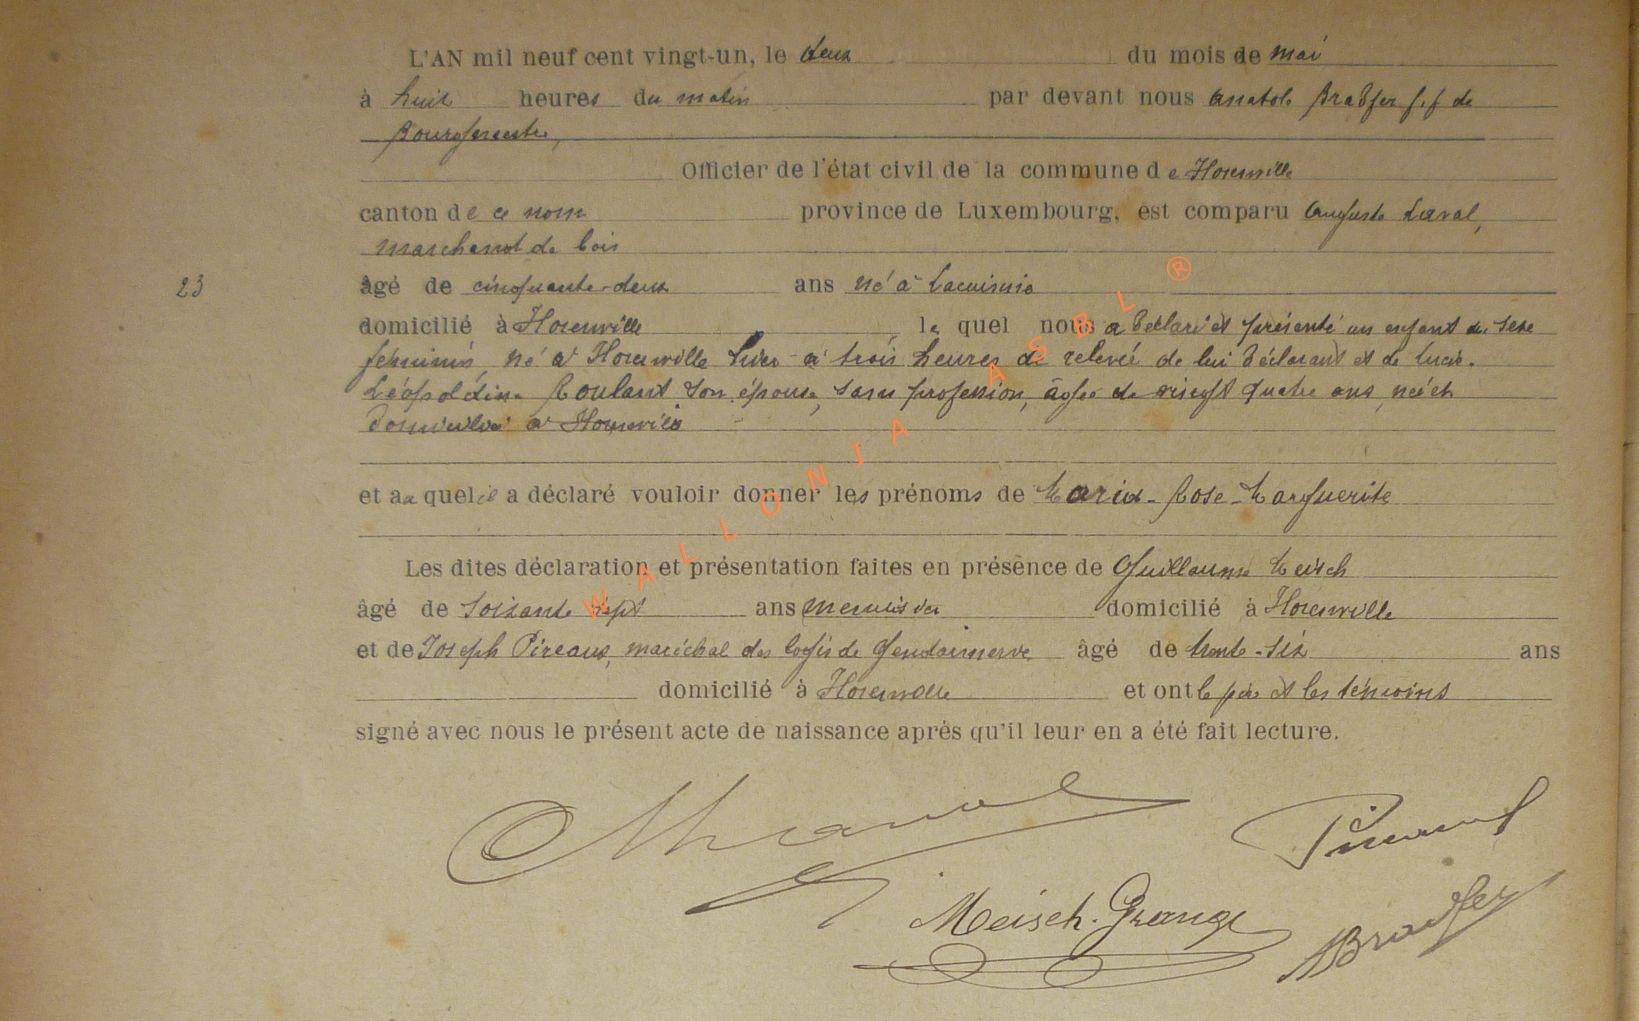 L'AN mil neuf cent vingt-un, le deux du mois de mai
à huit heures du matin par devant nous Anatole Bradfer f.f de
Bourgmestre,
Officier de l'état civil de la commune d e Florenville
canton de ce nom province de Luxembourg, est comparu Auguste Laval,
marchand de bois
23
âgé de cinquante-deux ans né à Lacuisine
domicilié à Florenville le quel nous a déclaré et présenté un enfant du sexe
féminin, né à Florenville hier à trois heures de relevée de lui déclarant et de Lucie-
Léopoldine Roulant son épouse, sans profession, âgée de vingt quatre ans, née et
domiciliée à Florenville
et au quel il a déclaré vouloir donner les prénoms de Maria-Rose-Marguerite
Les dites déclaration et présentation faites en présence de Guillaume Meisch
âgé de soixante sept ans menuisier domicilié à Florenville
et de Joseph Pireaux, maréchal des logis de Gendarmerie âgé de trente-six ans
domicilié à Florenville et ont le père et les témoins
signé avec nous le présent acte de naissance après qu'il leur en a été fait lecture.
Meisch-Grange
ABradfer
WALLONIA ASBL ®